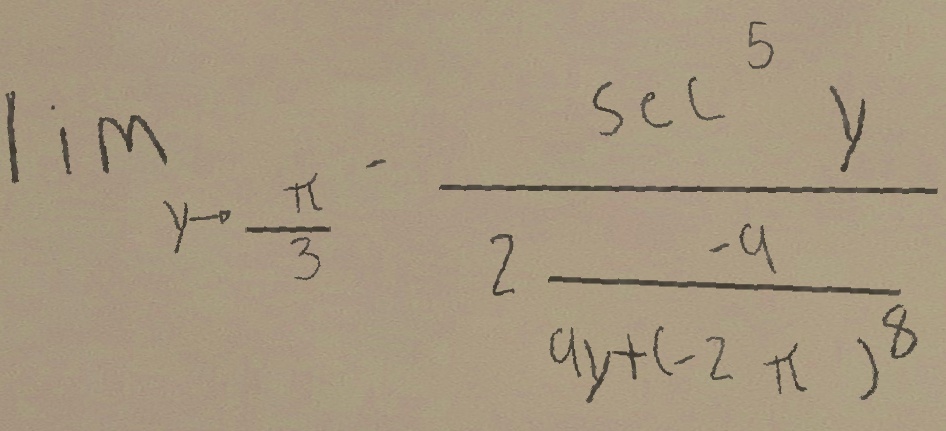 lim y→ π/3 - sec^5 y / 2 -9/9y+(-2π)^8